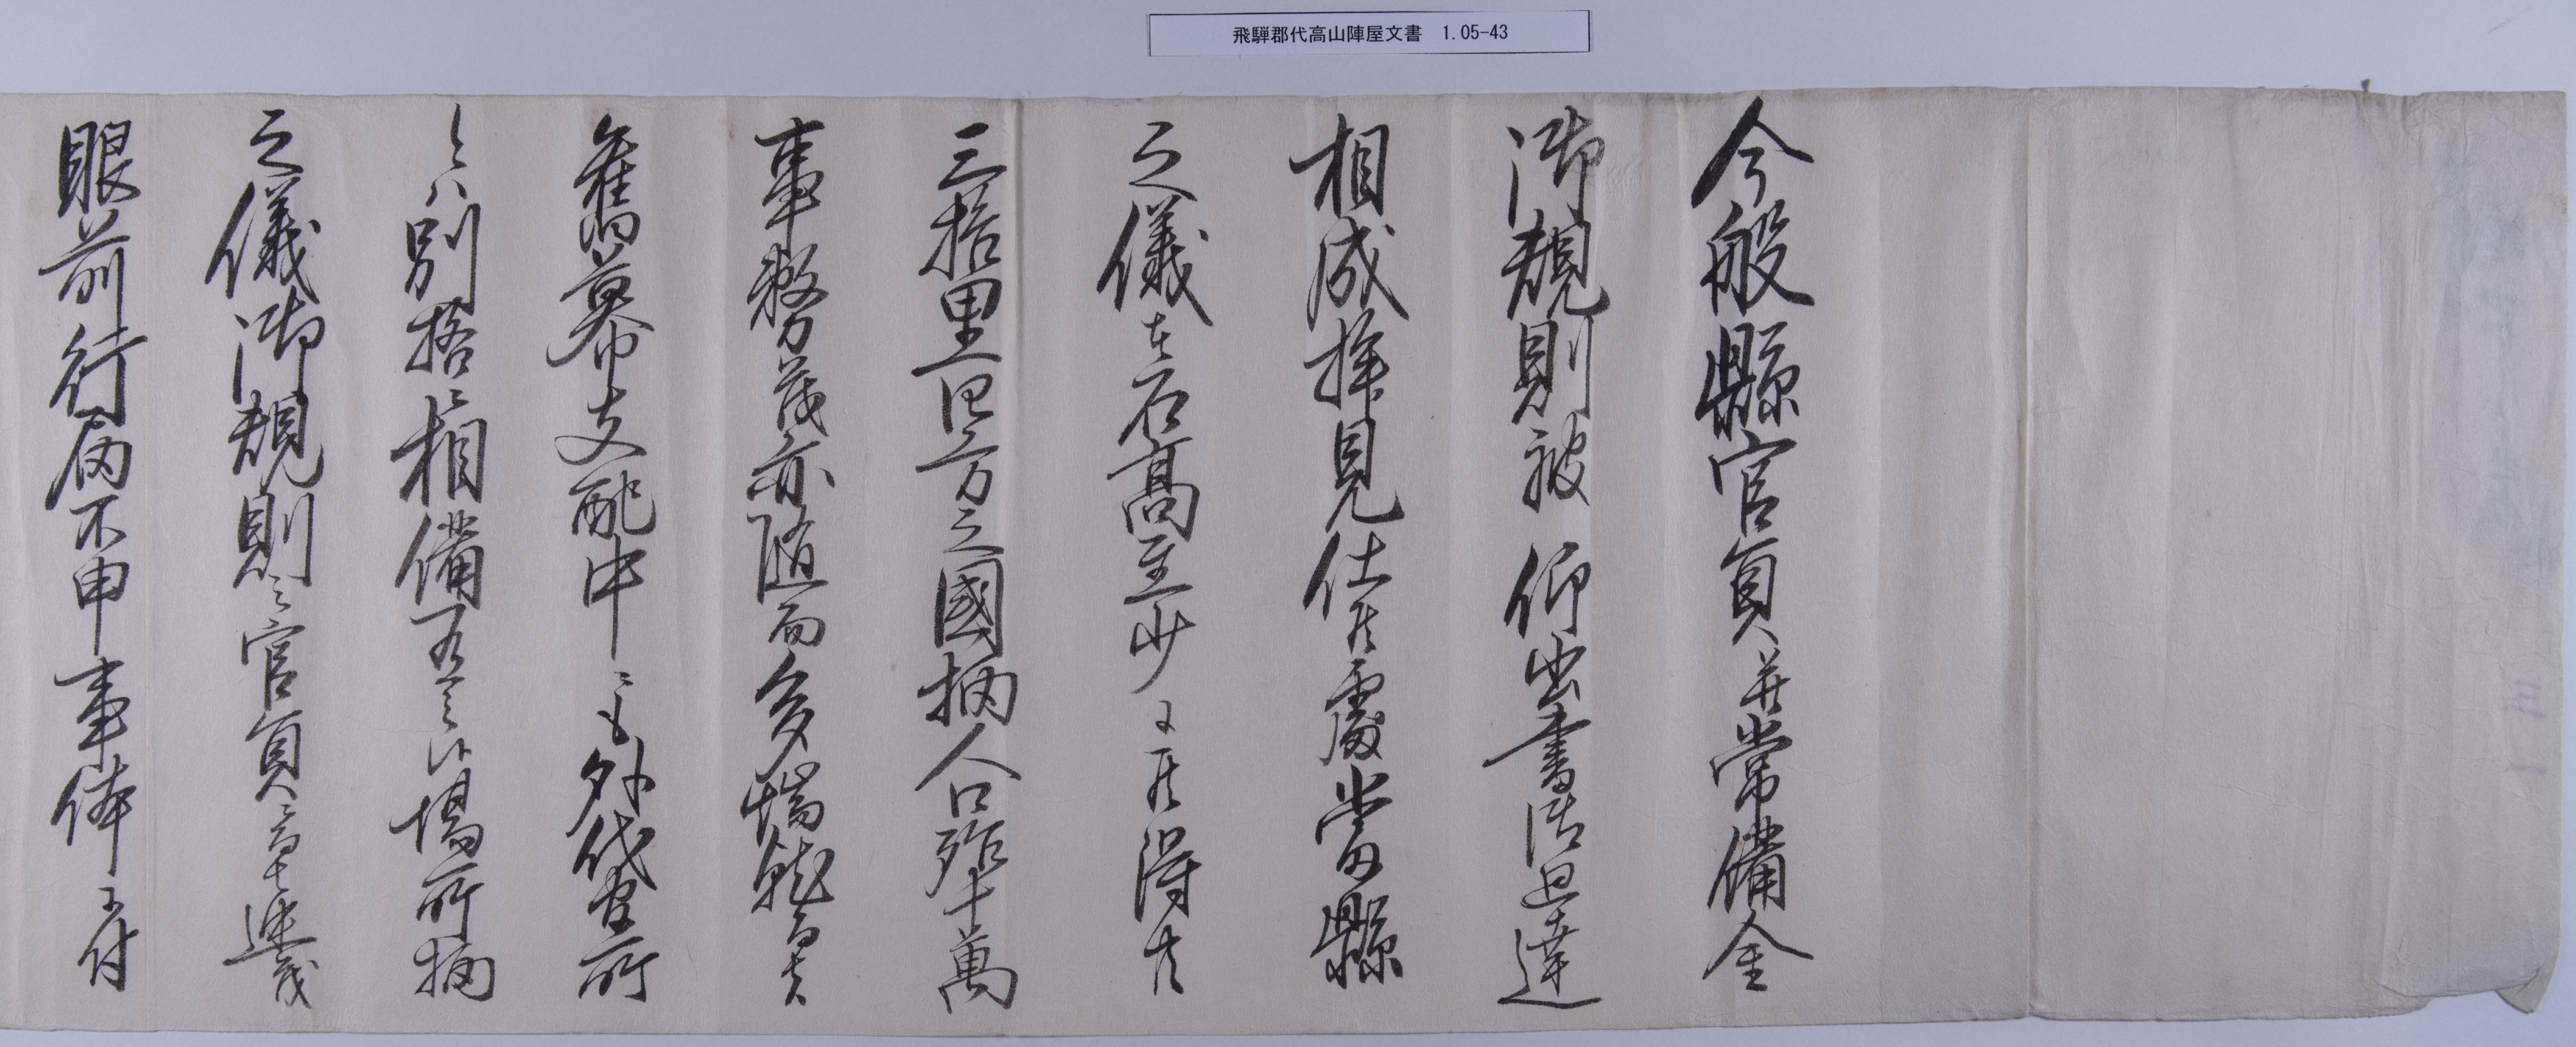 飛騨郡代高山陣屋文書 1.05-43
今般縣官員并常備金
御規則被 仰出書御廻達
相成拝見仕候處當縣
之儀者石高至少ニ候得共
三拾里四方之國柄人口殆十萬
事務茂亦随而多端就而者
舊幕支配中ニも外代官所
とハ別格ニ相備有之候場所柄
之儀御規則之官員ニ而者迚茂
眼前行届不申事体ニ付